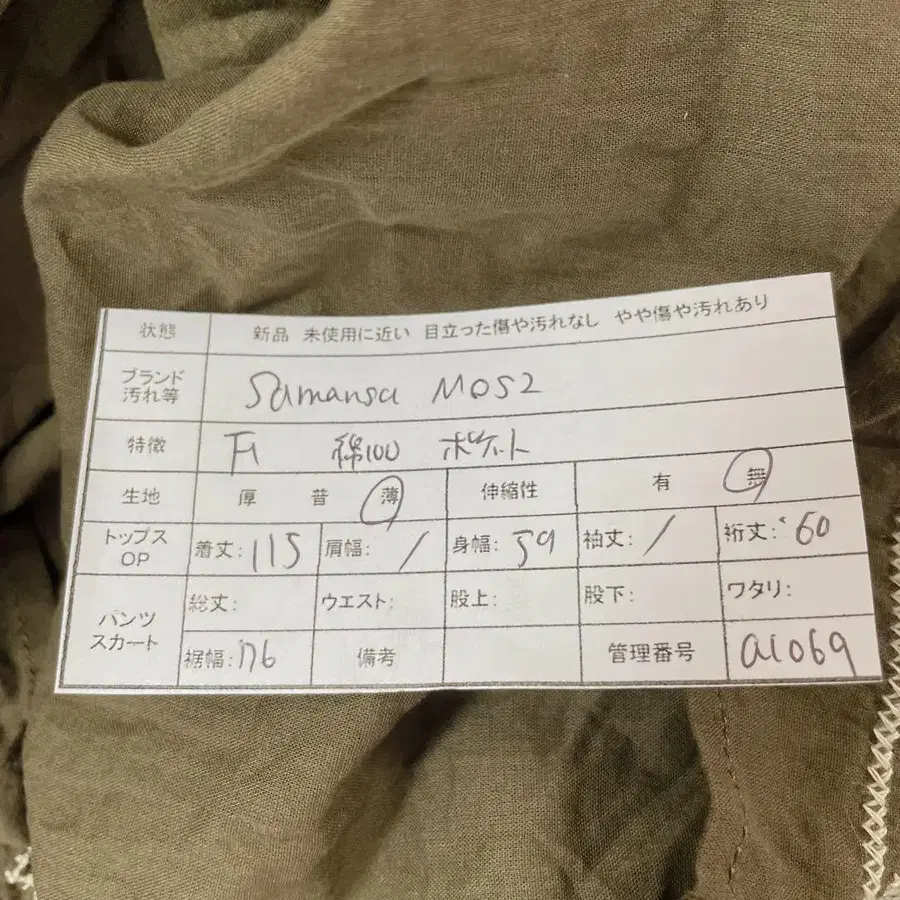 状態 新品 未使用に近い 目立った傷や汚れなし やや傷や汚れあり
ブランド 汚れ等 Samansa MOS2
特徴 綿100 ポケット
生地 厚 普 薄 伸縮性 有 無
トップス OP 着丈: 115 肩幅: / 身幅: 59 袖丈: / 裄丈: 60
パンツ スカート 総丈: ウエスト: 股上: 股下: ワタリ:
裾幅: 176 備考 管理番号 a1069